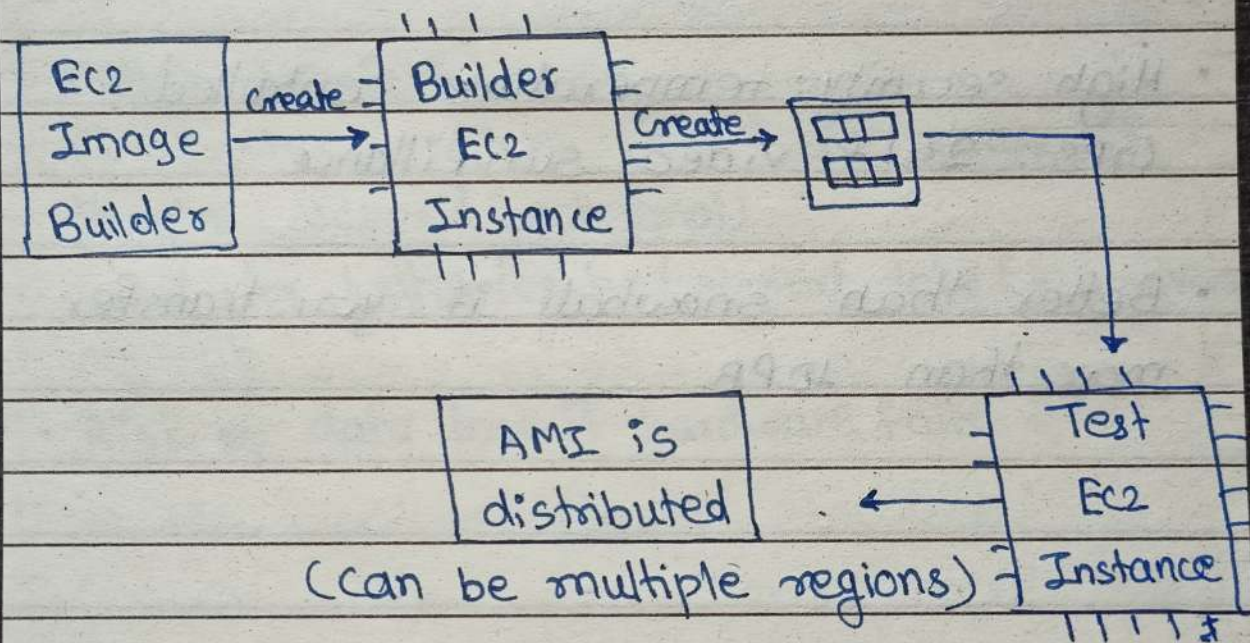 EC2
Image
Builder
Create
Builder
EC2
Instance
Create
Test
EC2
Instance
AMI is
distributed
(can be multiple regions)